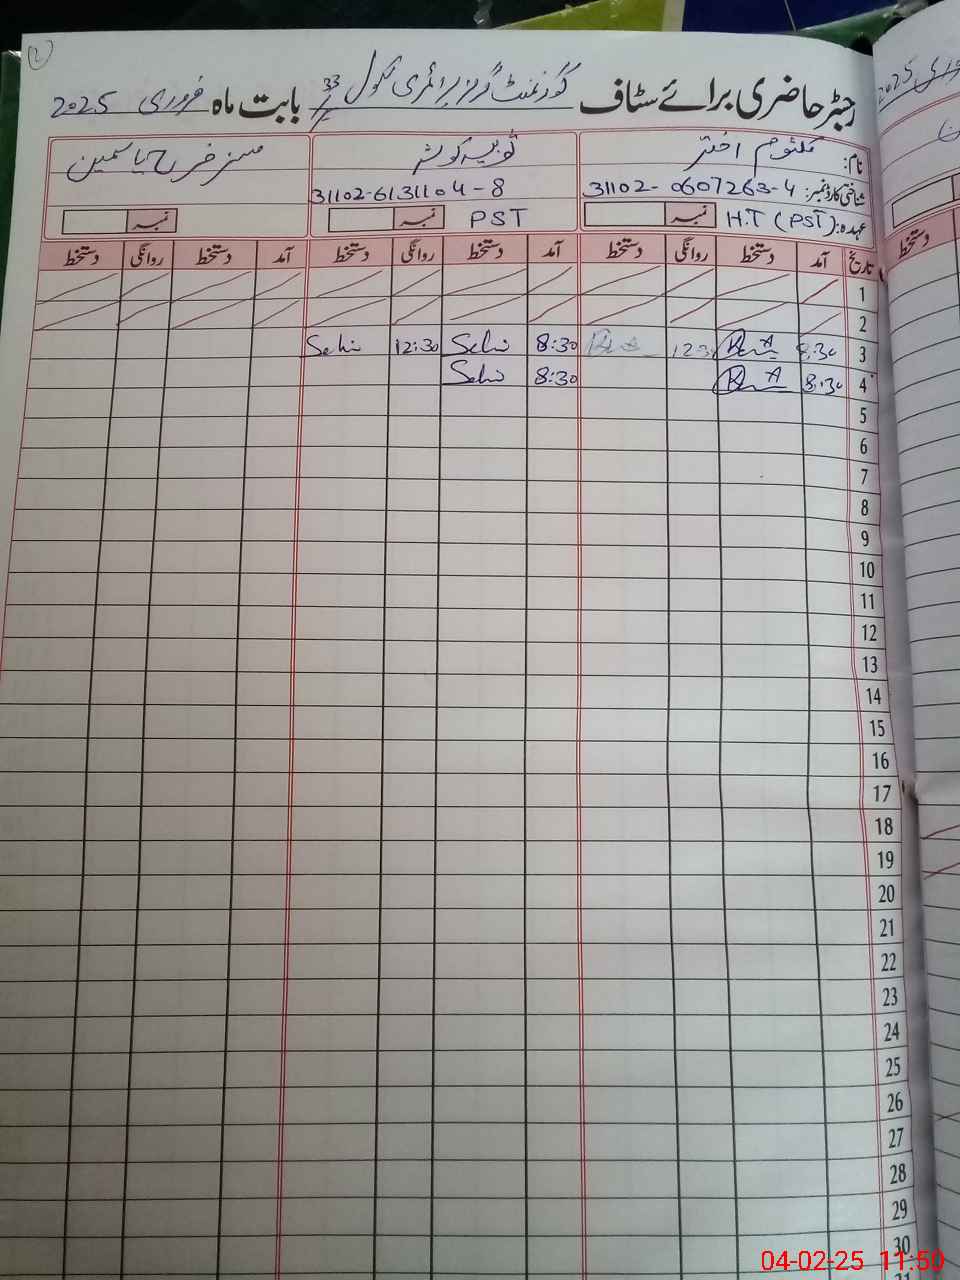 رجسٹر حاضری برائے سٹاف گورنمنٹ گرلز پرائمری سکول 33 بابت ماہ فروری 2025
نام: کلثوم اختر
ثوبیہ کوثر
مسز فرح یاسمین
شناختی کارڈ نمبر: 31102-0607263-4
31102-6131104-8
عہدہ: H.T (PST) نمبر
PST نمبر
نمبر
تاریخ آمد دستخط روانگی دستخط آمد دستخط روانگی دستخط آمد دستخط روانگی دستخط
1
2
3 8:30 12:30 8:30 Sehr 12:30 Sehr
4 8:30 8:30 Sehr
5
6
7
8
9
10
11
12
13
14
15
16
17
18
19
20
21
22
23
24
25
26
27
28
29
30
04-02-25 11:50